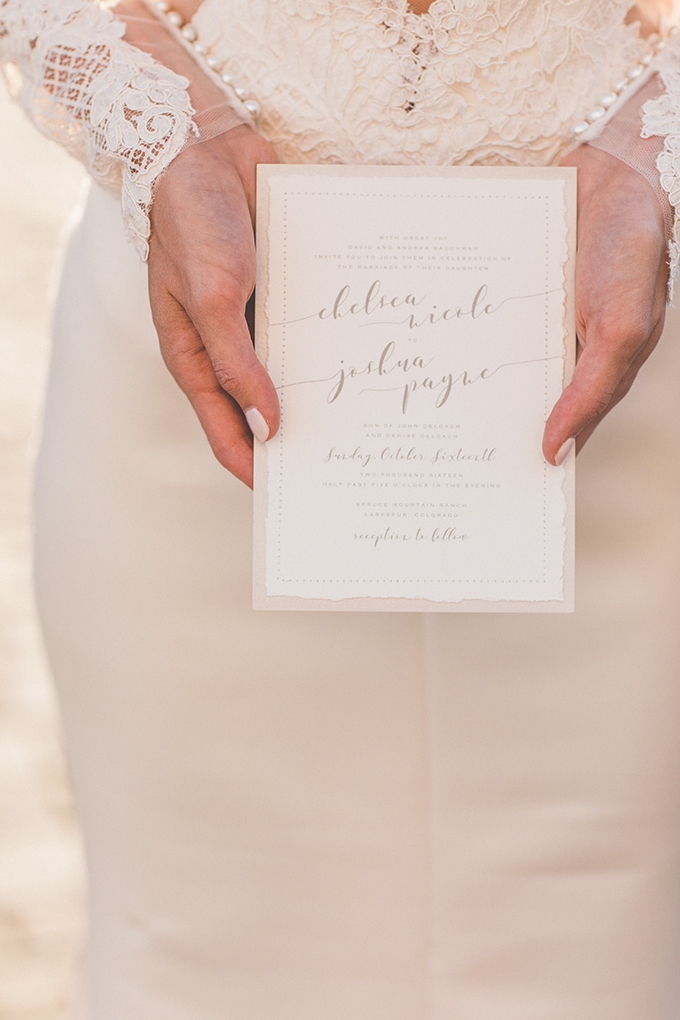 WITH GREAT JOY
DAVID AND ANDREA BAUGHMAN
INVITE YOU TO JOIN THEM IN CELEBRATION OF
THE MARRIAGE OF THEIR DAUGHTER
chelsea
nicole
TO
joshua
payne
SON OF JOHN DELOACH
AND DENISE DELOACH
Sunday, October Sixteenth
TWO THOUSAND SIXTEEN
HALF PART FIVE O'CLOCK IN THE EVENING
SPRUCE MOUNTAIN RANCH
LARKSPUR, COLORADO
reception to follow